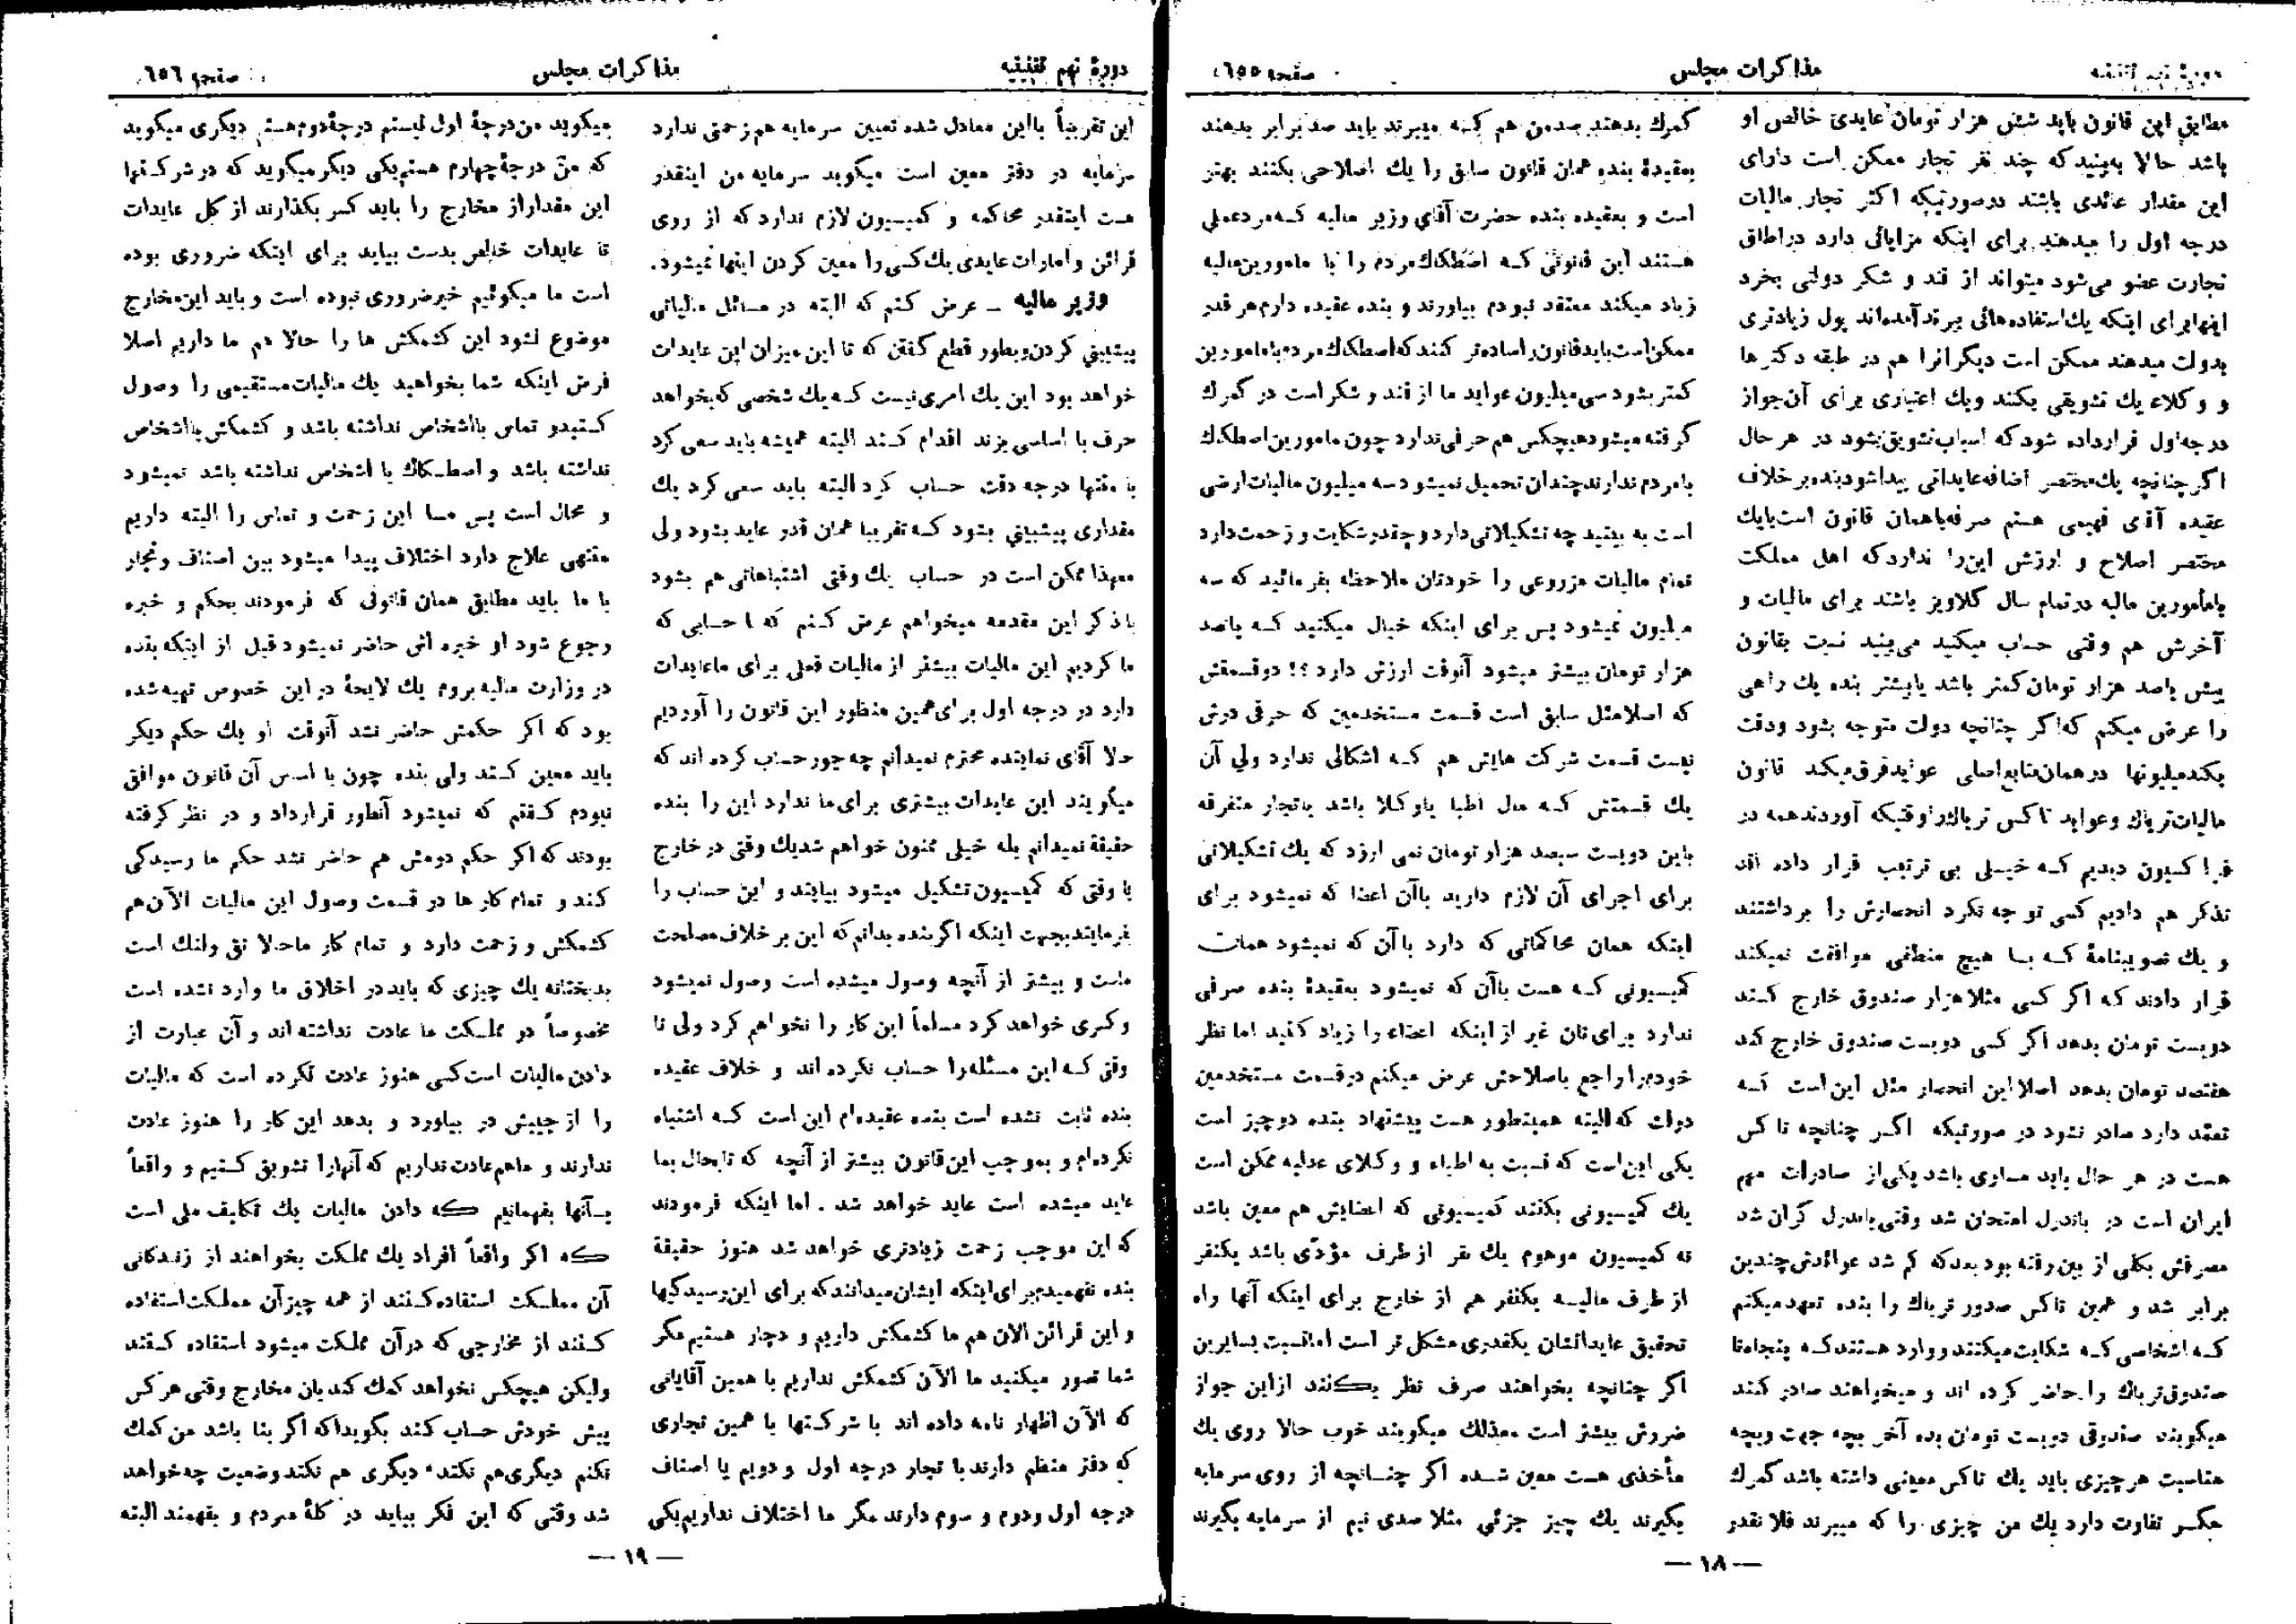 دورهٔ نهم تقنینیه
مذاکرات مجلس
صفحه ۶۵۵
مطابق این قانون باید شش هزار تومان عایدی خالص او
باشد حالا به‌بینید که چند نفر تجار ممکن است دارای
این مقدار عائدی باشند درصورتیکه اکثر تجار مالیات
درجه اول را میدهند برای اینکه مزایائی دارد دراطاق
تجارت عضو می‌شود میتواند از قند و شکر دولتی بخرد
اینها برای اینکه یك استفاده‌هائی ببرند آمده‌اند پول زیادتری
بدولت میدهند ممکن است دیگرانرا هم در طبقه دکترها
و وکلاء یك تشویقی بکنند ویك اعتباری برای آن جواز
درجه اول قرارداده شود که اسباب تشویق بشود در هر حال
اگر چنانچه یك مختصر اضافه عایداتی پیداشود بنده برخلاف
عقیده آقای فهیمی هستم صرفه باهمان قانون است بایك
مختصر اصلاح و ارزش این را ندارد که اهل مملکت
بامأمورین مالیه در تمام سال گلاویز باشند برای مالیات و
آخرش هم وقتی حساب میکنید می‌بینید نسبت بقانون
پیش پانصد هزار تومان کمتر باشد یابیشتر بنده یك راهی
را عرض میکنم که اگر چنانچه دولت متوجه بشود ودقت
بکند میلیونها در همان منابع اصلی عواید فرق میکند قانون
مالیات تریاك وعواید تاکس تریاك را وقتیکه آوردند همه در
فراکسیون دیدیم کـه خیـلی بی ترتیب قرار داده اند
تذکر هم دادیم کسی توجه نکرد انحصارش را برداشتند
و یك تصویبنامهٔ کـه بـا هیچ منطقی موافقت نمیکند
قرار دادند که اگر کسی مثلا هزار صندوق خارج کـند
دویست تومان بدهد اگر کسی دویست صندوق خارج کند
هفتصد تومان بدهد اصلا این انحصار مثل این است کـه
تعمد دارد صادر نشود در صورتیکه اگـر چنانچه تاکس
هست در هر حال باید مساوی باشد یکی از صادرات مهم
ایران است در باندرل امتحان شد وقتی باندرل گران شد
مصرفش بکلی از بین رفته بود بعد که کم شد عوائدش چندین
برابر شد و همین تاکس صدور تریاك را بنده تعهد میکنم
کـه اشخاصی کـه شکایت میکنند و وارد هستند کـه پنجاه تا
صندوق تریاك را حاضر کرده اند و میخواهند صادر کنند
میگویند صندوقی دویست تومان بده آخر بچه جهت وبچه
مناسبت هر چیزی باید یك تاکس معینی داشته باشد گمرك
مگـر تفاوت دارد یك من چیزی را که میبرند فلانقدر
گمرك بدهند صدمن هم کـه میبرند باید صد برابر بدهند
بعقیدهٔ بنده همان قانون سابق را یك اصلاحی بکنند بهتر
است و بعقیده بنده حضرت آقای وزیر مالیه کـه مرد عملی
هستند این قانونی کـه اصطکاك مردم را با مامورین مالیه
زیاد میکند معتقد نبودم بیاورند و بنده عقیده دارم هر قدر
ممکن است باید قانون را ساده‌تر کنند که اصطکاك مردم با مامورین
کمتر بشود سی میلیون عواید ما از قند و شکر است در گمرك
گرفته میشود هیچکس هم حرفی ندارد چون مامورین اصطکاك
بامردم ندارند چندان تحمیل نمیشود سه میلیون مالیات ارضی
است به بینید چه تشکیلاتی دارد و چقدر شکایت و زحمت دارد
تمام مالیات مزروعی را خودتان ملاحظه بفرمائید که سه
میلیون نمیشود پس برای اینکه خیال میکنید کـه پانصد
هزار تومان بیشتر میشود آنوقت ارزش دارد ؟! دو قسمتش
که اصلا مثل سابق است قسمت مستخدمین که حرفی درش
نیست قسمت شرکت هایش هم کـه اشکالی ندارد ولی آن
یك قسمتش کـه مال اطبا یا وکلا باشد یا تجار متفرقه
باین دویست سیصد هزار تومان نمی ارزد که یك تشکیلاتی
برای اجرای آن لازم دارید باآن اعضا که نمیشود برای
اینکه همان محاکماتی که دارد با آن که نمیشود همان
کمیسیونی کـه هست باآن که نمیشود بعقیدهٔ بنده صرفی
ندارد برای تان غیر از اینکه اعضاء را زیاد کنید اما نظر
خودم را راجع باصلاحش عرض میکنم در قسمت مستخدمین
دولت که البته همینطور هست پیشنهاد بنده دو چیز است
یکی این است که نسبت به اطباء و وکلای عدلیه ممکن است
یك کمیسیونی بکنند کمیسیونی که اعضایش هم معین باشد
نه کمیسیون موهوم یك نفر از طرف مؤدی باشد یکنفر
از طرف مالیـه یکنفر هم از خارج برای اینکه آنها راه
تحقیق عایداتشان یکقدری مشکل تر است اما نسبت بسایرین
اگر چنانچه بخواهند صرف نظر بکنند از این جواز
ضررش بیشتر است معذلك میگویند خوب حالا روی یك
مأخذی هست معین شـده اگر چنـانچه از روی سرمایه
بگیرند یك چیز جزئی مثلا صدی نیم از سرمایه بگیرند
— ۱۸ —
دورهٔ نهم تقنینیه
مذاکرات مجلس
صفحه ۶۵۶
این تقریباً بااین معادل شده تعیین سرمایه هم زحمتی ندارد
سرمایه در دفتر معین است میگوید سرمایه من اینقدر
هست اینقدر محاکمه و کمیسیون لازم ندارد که از روی
قرائن و امارات عایدی یك کسی را معین کردن اینها نمیشود.
وزیر مالیه ـ عرض کنم که البته در مسائل مالیاتی
پیشبینی کردن و بطور قطع گفتن که تا این میزان این عایدات
خواهد بود این یك امری نیست کـه یك شخصی که بخواهد
حرف با اساسی بزند اقدام کـند البته همیشه باید سعی کرد
با منتها درجه دقت حساب کرد البته باید سعی کرد یك
مقداری پیشبینی بشود کـه تقریبا همان قدر عاید بشود ولی
معهذا ممکن است در حساب یك وقتی اشتباهاتی هم بشود
با ذکر این مقدمه میخواهم عرض کـنم که با حسابی که
ما کردیم این مالیات بیشتر از مالیات فعلی برای ما عایدات
دارد در درجه اول برای همین منظور این قانون را آوردیم
حالا آقای نماینده محترم نمیدانم چه جور حساب کرده اند که
میگویند این عایدات بیشتری برای ما ندارد این را بنده
حقیقة نمیدانم بله خیلی ممنون خواهم شد یك وقتی در خارج
یا وقتی که کمیسیون تشکیل میشود بیایند و این حساب را
بفرمایند بجهت اینکه اگر بنده بدانم که این بر خلاف مصلحت
ماست و بیشتر از آنچه وصول میشده است وصول نمیشود
و کسری خواهد کرد مسلماً این کار را نخواهم کرد ولی تا
وقتی کـه این مسئله را حساب نکرده اند و خلاف عقیده
بنده ثابت نشده است بنده عقیده‌ام این است کـه اشتباه
نکرده‌ام و بموجب این قانون بیشتر از آنچه که تابحال بما
عاید میشده است عاید خواهد شد . اما اینکه فرمودند
که این موجب زحمت زیادتری خواهد شد هنوز حقیقة
بنده نفهمیدم برای اینکه ایشان میدانند که برای این رسیدگیها
و این قرائن الان هم ما کشمکش داریم و دچار هستیم مگر
شما تصور میکنید ما الآن کشمکش نداریم با همین آقایانی
که الآن اظهار نامه داده اند با شرکتها یا همین تجاری
که دفتر منظم دارند با تجار درجه اول و دویم یا اصناف
درجه اول ودوم و سوم دارند مگر ما اختلاف نداریم یکی
میگوید من درجهٔ اول نیستم درجهٔ دوم هستم دیگری میگوید
که من درجهٔ چهارم هستم یکی دیگر میگوید که در شرکتها
این مقدار از مخارج را باید کسر بگذارند از کل عایدات
تا عایدات خالص بدست بیاید برای اینکه ضروری بوده
است ما میگوئیم خیر ضروری نبوده است و باید این مخارج
موضوع نشود این کشمکش ها را حالا هم ما داریم اصلا
فرض اینکه شما بخواهید یك مالیات مستقیمی را وصول
کـنید و تماس بااشخاص نداشته باشد و کشمکش بااشخاص
نداشته باشد و اصطـکاك با اشخاص نداشته باشد نمیشود
و محال است پس مـا این زحمت و تماس را البته داریم
منتهی علاج دارد اختلاف پیدا میشود بین اصناف و تجار
با ما باید مطابق همان قانونی که فرمودند بحکم و خبره
رجوع شود او خبره اش حاضر نمیشود قبل از اینکه بنده
در وزارت مالیه بروم یك لایحهٔ در این خصوص تهیه شده
بود که اگر حکمش حاضر نشد آنوقت او یك حکم دیگر
باید معین کـند ولی بنده چون با اساس آن قانون موافق
نبودم گـفتم که نمیشود آنطور قرارداد و در نظر گرفته
بودند که اگر حکم دومش هم حاضر نشد حکم ما رسیدگی
کـند و تمام کار ها در قسمت وصول این مالیات الآن هم
کشمکش و زحمت دارد و تمام کار ماحالا نق ولنگ است
بدبختانه یك چیزی که باید در اخلاق ما وارد نشده است
مخصوصاً در مملـکت ما عادت نداشته اند و آن عبارت از
دادن مالیات است کسی هنوز عادت نکرده است که مالیات
را از جیبش در بیاورد و بدهد این کار را هنوز عادت
ندارند و ماهم عادت نداریم که آنهارا تشویق کـنیم و واقعاً
بـآنها بفهمانیم که دادن مالیات یك تکلیف ملی است
که اگر واقعاً افراد یك مملکت بخواهند از زندگانی
آن مملـکت استفاده کـنند از همه چیز آن مملـکت استفاده
کـنند از مخارجی که در آن مملکت میشود استفاده کـنند
ولیکن هیچکس نخواهد کمك کند بان مخارج وقتی هر کس
پیش خودش حساب کند بگوید که اگر بنا باشد من کمك
نکنم دیگری هم نکند دیگری هم نکند وضعیت چه خواهد
شد وقتی که این فکر بیاید در کلهٔ مردم و بفهمند البته
— ۱۹ —